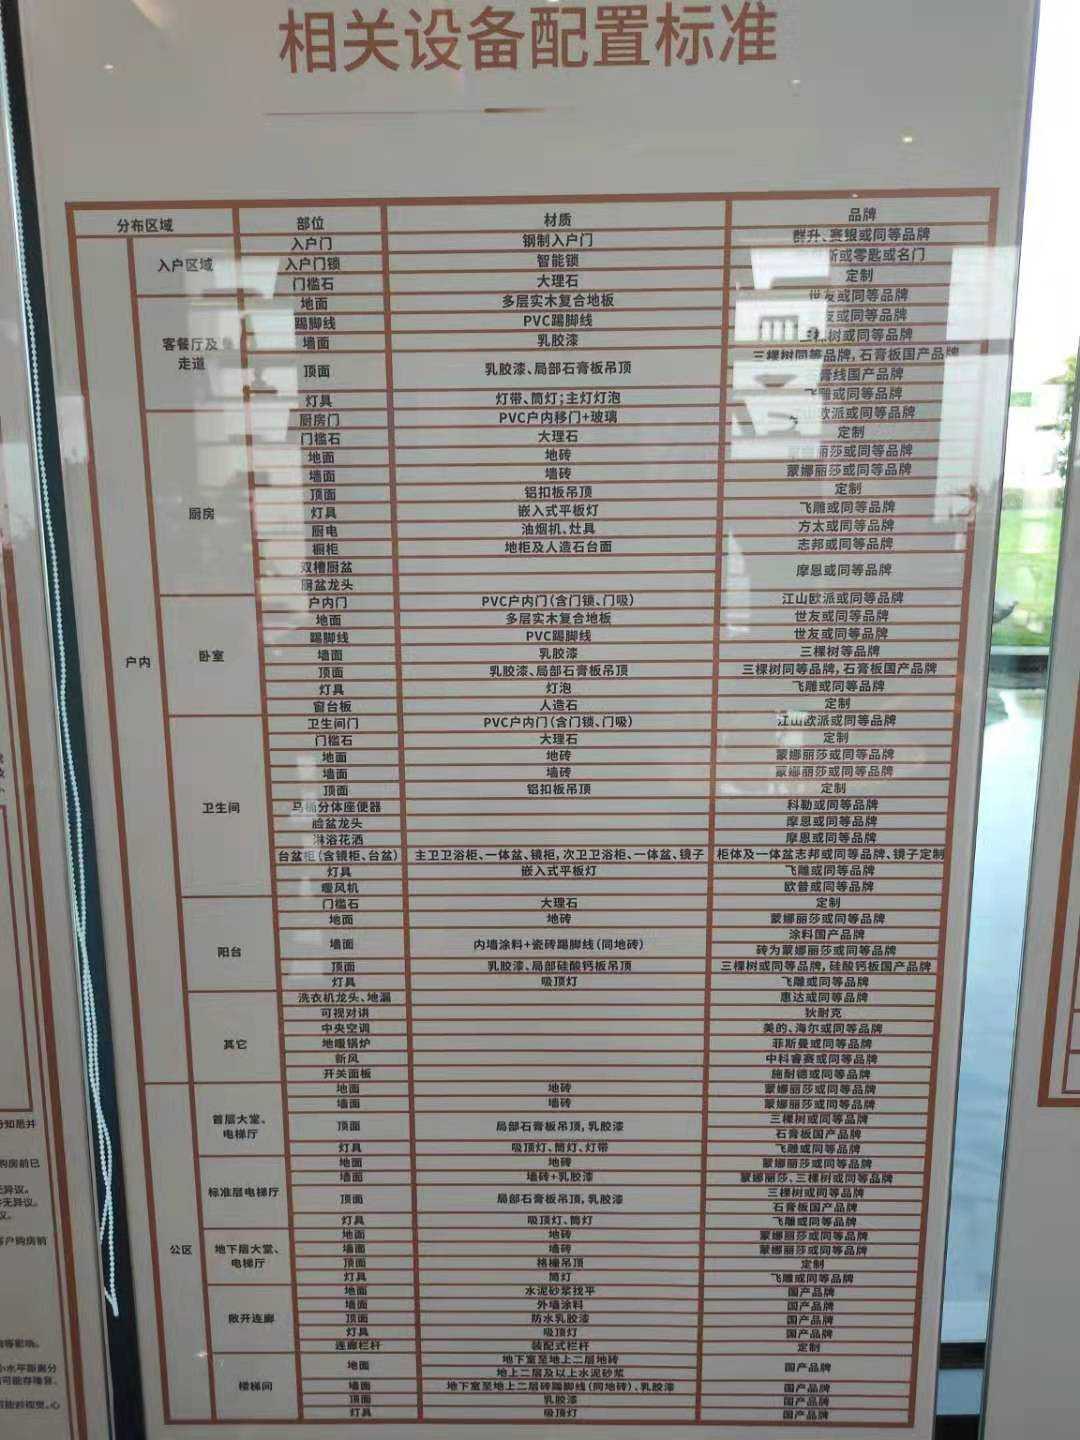 相关设备配置标准
分布区域 部位 材质 品牌
户内
入户区域
入户门 钢制入户门 群升、赛银或同等品牌
入户门锁 智能锁 斯或零匙或名门
门槛石 大理石 定制
客餐厅及
走道
地面 多层实木复合地板 世友或同等品牌
踢脚线 PVC踢脚线 友或同等品牌
墙面 乳胶漆 三棵树或同等品牌
顶面 乳胶漆、局部石膏板吊顶 三棵树同等品牌,石膏板国产品牌
膏线国产品牌
灯具 灯带、筒灯;主灯灯泡 飞雕或同等品牌
厨房
厨房门 PVC户内移门+玻璃 山欧派或同等品牌
门槛石 大理石 定制
地面 地砖 丽莎或同等品牌
墙面 墙砖 蒙娜丽莎或同等品牌
顶面 铝扣板吊顶 定制
灯具 嵌入式平板灯 飞雕或同等品牌
厨电 油烟机、灶具 方太或同等品牌
橱柜 地柜及人造石台面 志邦或同等品牌
双槽厨盆
厨盆龙头 摩恩或同等品牌
卧室
户内门 PVC户内门(含门锁、门吸) 江山欧派或同等品牌
地面 多层实木复合地板 世友或同等品牌
踢脚线 PVC踢脚线 世友或同等品牌
墙面 乳胶漆 三棵树等品牌
顶面 乳胶漆、局部石膏板吊顶 三棵树同等品牌,石膏板国产品牌
灯具 灯泡 飞雕或同等品牌
窗台板 人造石 定制
卫生间
卫生间门 PVC户内门(含门锁、门吸) 江山欧派或同等品牌
门槛石 大理石 定制
地面 地砖 蒙娜丽莎或同等品牌
墙面 墙砖 蒙娜丽莎或同等品牌
顶面 铝扣板吊顶 定制
马桶分体座便器 科勒或同等品牌
脸盆龙头 摩恩或同等品牌
淋浴花洒 摩恩或同等品牌
台盆柜(含镜柜、台盆) 主卫卫浴柜、一体盆、镜柜,次卫卫浴柜、一体盆、镜子 柜体及一体盆志邦或同等品牌、镜子定制
灯具 嵌入式平板灯 飞雕或同等品牌
暖风机 欧普或同等品牌
阳台
门槛石 大理石 定制
地面 地砖 蒙娜丽莎或同等品牌
墙面 内墙涂料+瓷砖踢脚线(同地砖) 涂料国产品牌
砖为蒙娜丽莎或同等品牌
顶面 乳胶漆、局部硅酸钙板吊顶 三棵树或同等品牌,硅酸钙板国产品牌
灯具 吸顶灯 飞雕或同等品牌
其它
洗衣机龙头、地漏 惠达或同等品牌
可视对讲 狄耐克
中央空调 美的、海尔或同等品牌
地暖锅炉 菲斯曼或同等品牌
新风 中科睿赛或同等品牌
开关面板 施耐德或同等品牌
公区
首层大堂、
电梯厅
地面 地砖 蒙娜丽莎或同等品牌
墙面 墙砖 蒙娜丽莎或同等品牌
顶面 局部石膏板吊顶,乳胶漆 三棵树或同等品牌
石膏板国产品牌
灯具 吸顶灯、筒灯、灯带 飞雕或同等品牌
标准层电梯厅
地面 地砖 蒙娜丽莎或同等品牌
墙面 墙砖+乳胶漆 蒙娜丽莎、三棵树或同等品牌
顶面 局部石膏板吊顶,乳胶漆 三棵树或同等品牌
石膏板国产品牌
灯具 吸顶灯、筒灯 飞雕或同等品牌
地下层大堂、
电梯厅
地面 地砖 蒙娜丽莎或同等品牌
墙面 墙砖 蒙娜丽莎或同等品牌
顶面 格栅吊顶 定制
灯具 筒灯 飞雕或同等品牌
敞开连廊
地面 水泥砂浆找平 国产品牌
墙面 外墙涂料 国产品牌
顶面 防水乳胶漆 国产品牌
灯具 吸顶灯 国产品牌
连廊栏杆 装配式栏杆 定制
楼梯间
地面 地下室至地上二层地砖
地上二层及以上水泥砂浆 国产品牌
墙面 地下室至地上二层砖踢脚线(同地砖)、乳胶漆 国产品牌
顶面 乳胶漆 国产品牌
灯具 吸顶灯 国产品牌